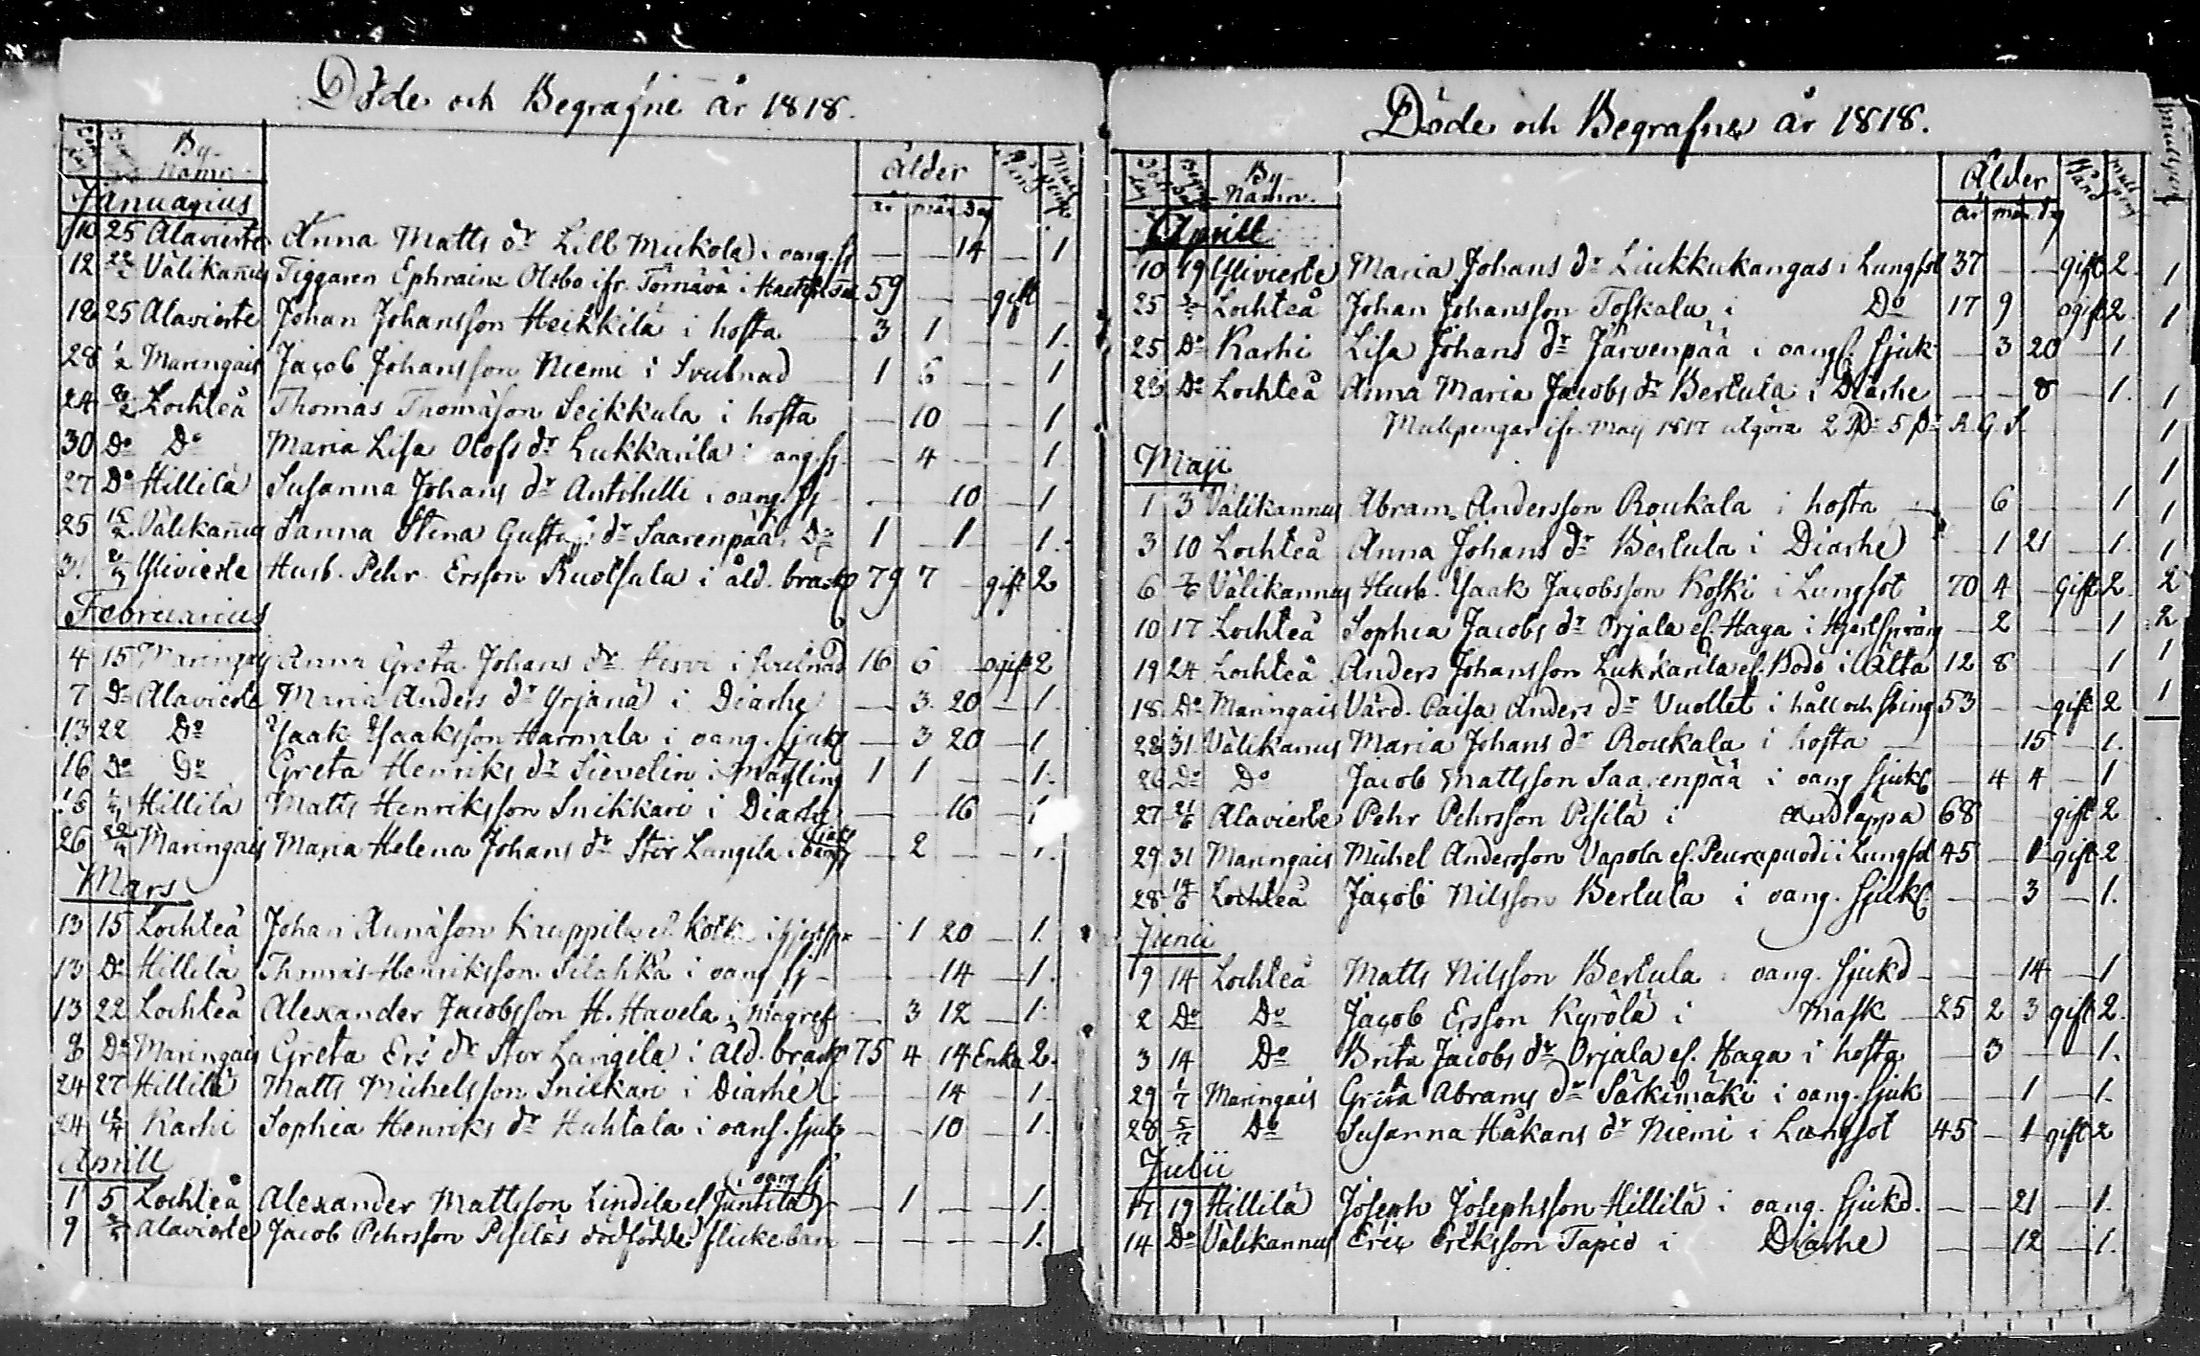 Döde och Begrafne år 1818.
By-Namn. Ålder Mull
år mån dag
Januarius
10 25 Alavieste Anna Matts dr Lill Miekola i oang. sj — — 14 — 1
12 Välikannus Tiggaren Ephraim Olsbo ifr. Törnävä i 59 — — gift —
18 25 Alavieste Johan Johansson Heikkilä i hosta 3 1 — — 1.
28 1/2 Maringais Jacob Johansson Niemi i Svulnad 1 6 — — 1
24 8/2 Lochteå Thomas Thomasson Seikkula i hosta — 10 — — 1
30 Do Do Maria Lisa Olofs dr Lukkarila i oang. sj. — 4 — — 1.
27 Do Hillilä Susanna Johans dr Antihilli i oang. sj — — 10 — 1
25 15/2 Välikannus Sanna Stina Gustafs dr Saarenpää i Do 1 — 1 — 1.
31 Ylivieste Husb. Pehr Ersson Ruotsala i åld. bräck 79 7 — gift 2
Februarius
4 15 Maringais Anna Greta Johans dr Hirvi i svulnad 16 6 — ogift 2
7 Do Alavieste Maria Anders dr Yrjänä i Diarhe — 3 20 — 1.
13 22 Do Ysaak Ysaaksson Harmala i oang. sjukd — 3 20 — 1
16 Do Do Greta Henriks dr Sievelin i Mässling 1 1 — — 1.
Hillilä Matts Henriksson Snikkari i Diarhe — — 16 — 1
26 22/4 Maringais Maria Helena Johans dr Stor Langila i oang sjukd — 2 — — 1.
Mars
13 15 Lochteå Johan Aunasson Kruppila ef. Kotk — 1 20 — 1.
13 Do Hillilä Thomas Henriksson Silahka i oang sj — — 14 — 1.
13 22 Lochteå Alexander Jacobsson H. Havela i magref — 3 12 — 1.
8 Do Maringais Greta Ers dr Stor Langila i åld. bräck 75 4 14 Enka 2.
24 27 Hillilä Matts Michelsson Snickari i Diarhe — — 14 — 1.
24 Karhi Sophia Henriks dr Huhtala i oang. sjuk — — 10 — 1.
Aprill
i oang sj
1 5 Lochteå Alexander Mattsson Lindila ef Juntila — 1 — — 1.
9 Alavieste Jacob Pehrsson Pisiläs dödfödde flickebarn — — — — 1.
Döde och Begrafne år 1818.
By-Namn. Ålder Stånd mull peng
år mån dag
Aprill
10 19 Ylivieste Maria Johans dr Liukkukangas i Lungsot 37 — — gift 2. 1
25 Lochteå Johan Johansson Toskala i Do 17 9 ogift 2. 1
25 Do Karhi Lisa Johans dr Järvenpää i oang. sjuk — 3 20 — 1.
23 Do Lochteå Anna Maria Jacobs dr Bertula i Diarhe — — 8 — 1. 1
Mullpengar ifr. Maij 1817 utgöra 2 Rd 5 R. G. S. 1
Maji 1
1 3 Välikannus Abram Andersson Roukala i hosta — 6 — — 1 1
3 10 Lochteå Anna Johans dr Bertula i Diarhe — 1 21 — 1. 1
6 7/6 Välikannus Husb. Ysaak Jacobsson Koski i Lungsot 70 4 — gift 2. 2
10 17 Lochteå Sophia Jacobs dr Orjala ef. Haga i Hjertsprång — 2 — — 1 2
19 24 Lochteå Anders Johansson Lukkarila ef. Bodö i Ålta 12 8 — — 1 1
18 Do Maringais Värd. Caisa Anders dr Vuollet i håll och sting 53 — — gift 2 1
28 31 Välikannus Maria Johans dr Roukala i hosta — — 15 — 1.
26 Do Do Jacob Mattsson Saarenpää i oang sjukd — 4 4 — 1
27 21/6 Alavieste Pehr Pehrsson Pisilä i Andtäppa 68 gift 2
29 31 Maringais Michel Andersson Vapola ef. i Lungsot 45 — 1 gift 2
28 14/6 Lochteå Jacob Nilsson Bertula i oang. sjukd. — — 3 — 1.
Junii
9 14 Lochteå Matts Nilsson Bertula i oang. sjukd — — 14 — 1
2 Do Do Jacob Ersson Kyrölä i Mask 25 2 3 gift 2.
3 14 Do Brita Jacobs dr Orjala ef. Haga i hosta — 3 — — 1.
29 1/7 Maringais Greta Abrams dr Särkimäki i oang. sjuk — — 1 — 1.
28 5/7 Do Susanna Håkans dr Niemi i Lungsot 45 — 1 gift 2
Julii
19 Hillilä Joseph Josephsson Hillilä i oang. sjukd. — — 21 — 1.
14 Do Välikannus Eric Eriksson Tapio i Diarhe — — 12 — 1.